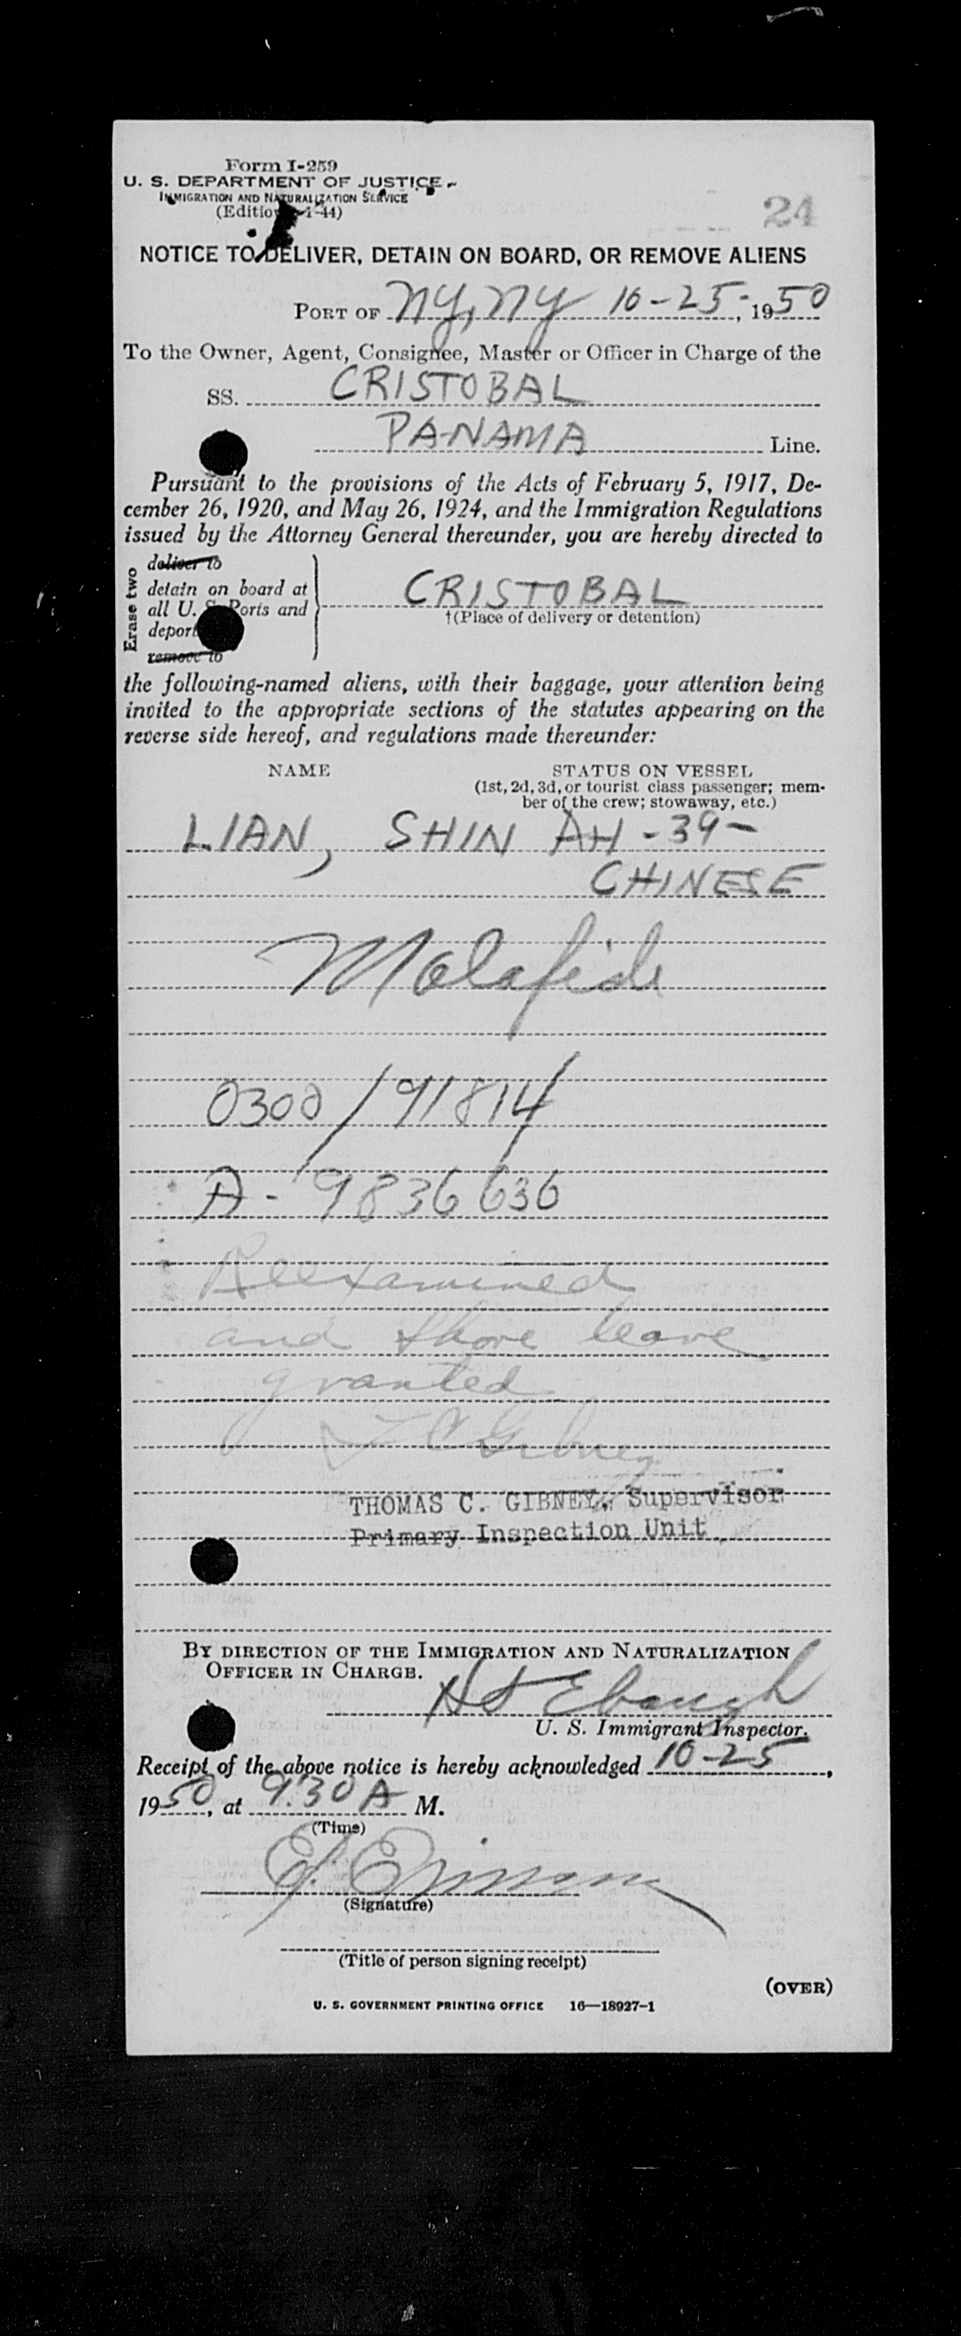 Form I-259
U. S. DEPARTMENT OF JUSTICE
IMMIGRATION AND NATURALIZATION SERVICE
(Edition 1-44)
24
NOTICE TO DELIVER, DETAIN ON BOARD, OR REMOVE ALIENS
PORT OF NY, NY 10-25-, 1950
To the Owner, Agent, Consignee, Master or Officer in Charge of the
SS. CRISTOBAL
PANAMA Line.
Pursuant to the provisions of the Acts of February 5, 1917, De-
cember 26, 1920, and May 26, 1924, and the Immigration Regulations
issued by the Attorney General thereunder, you are hereby directed to
Erase two
deliver to
detain on board at
all U. S. Ports and
deport
remove to
CRISTOBAL
†(Place of delivery or detention)
the following-named aliens, with their baggage, your attention being
invited to the appropriate sections of the statutes appearing on the
reverse side hereof, and regulations made thereunder:
NAME STATUS ON VESSEL
(1st, 2d, 3d, or tourist class passenger; mem-
ber of the crew; stowaway, etc.)
LIAN, SHIN AH -39-
CHINESE
Malafide
0300/91814
A-9836636
Reexamined
and shore leave
granted
T C Gibney
THOMAS C. GIBNEY, Supervisor
Primary Inspection Unit
BY DIRECTION OF THE IMMIGRATION AND NATURALIZATION
OFFICER IN CHARGE.
Ebaugh
U. S. Immigrant Inspector.
Receipt of the above notice is hereby acknowledged 10-25,
1950, at 9:30 A M.
(Time)
(Signature)
(Title of person signing receipt)
(OVER)
U. S. GOVERNMENT PRINTING OFFICE 16—18927-1